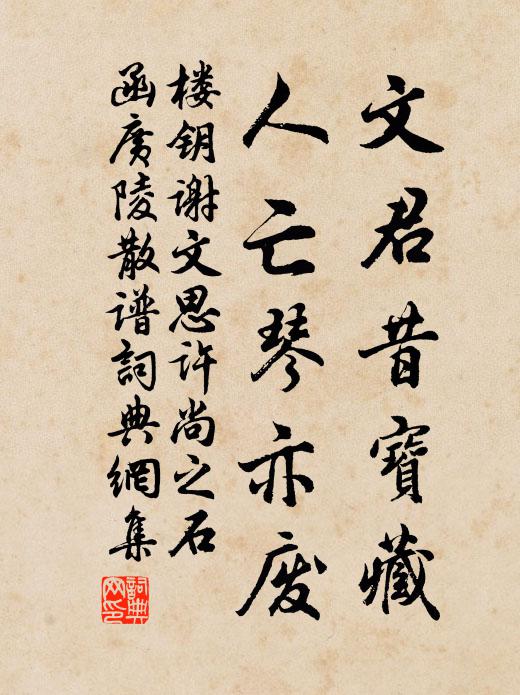 文君昔寶藏
人亡琴亦废
楼钥谢文思许尚之石
函广陵散谱詞典網集
詞典
网印